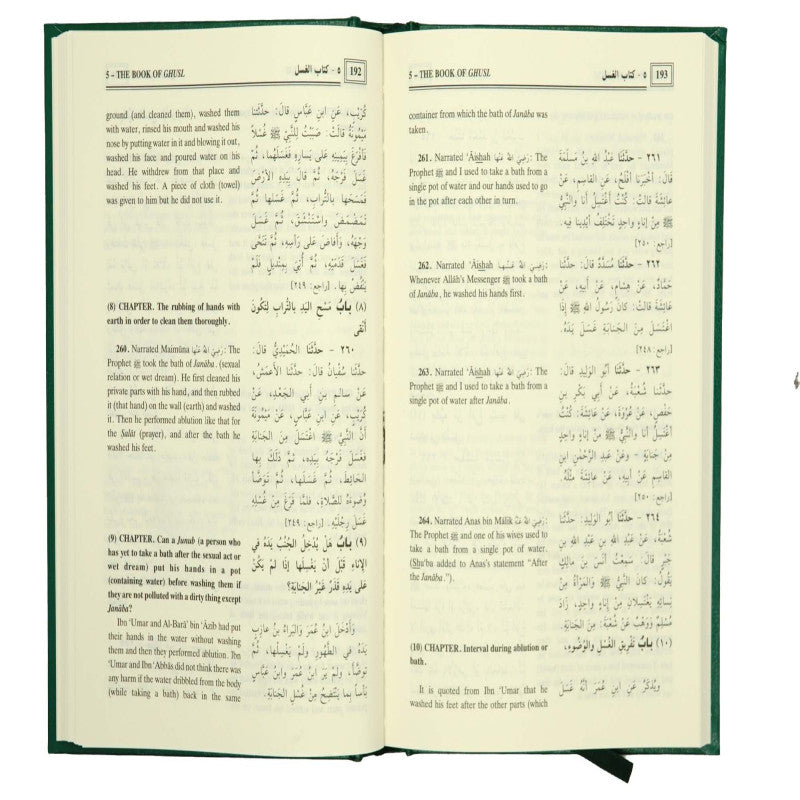 5 – THE BOOK OF GHUSL
٥ - كتاب الغسل
192
ground (and cleaned them), washed them
with water, rinsed his mouth and washed his
nose by putting water in it and blowing it out,
washed his face and poured water on his
head. He withdrew from that place and
washed his feet. A piece of cloth (towel)
was given to him but he did not use it.
كُرَيْبٍ، عَنِ ابنِ عَبَّاسٍ قالَ: حدَّثَتْنا
مَيْمُونَةُ قالَتْ: صَبَبْتُ لِلنَّبِيِّ ﷺ غُسْلًا
فَأَفْرَغَ بِيَمِينِهِ عَلى يَسارِهِ فَغَسَلَهُما، ثُمَّ
غَسَلَ فَرْجَهُ، ثُمَّ قالَ بِيَدِهِ الأرْضَ
فَمَسَحَها بالتُّرَابِ، ثُمَّ غَسَلها ثُمَّ
تَمَضْمَضَ واسْتَنْشَقَ، ثُمَّ غَسَلَ
وَجْهَهُ، وَأَفَاضَ عَلى رَأْسِهِ، ثُمَّ تَنَحَّى
فَغَسَلَ قَدَمَيْهِ، ثُمَّ أُتِيَ بِمِنْدِيلٍ فَلَمْ
يَنْفُضْ بِها. [راجع: ٢٤٩]
(8) CHAPTER. The rubbing of hands with
earth in order to clean them thoroughly.
(٨) بابُ مَسْحِ اليَدِ بالتُّرابِ لِتَكُونَ
أَنْقَى
260. Narrated Maimūna رَضِيَ اللهُ عَنْهَا: The
Prophet ﷺ took the bath of Janāba. (sexual
relation or wet dream). He first cleaned his
private parts with his hand, and then rubbed
it (that hand) on the wall (earth) and washed
it. Then he performed ablution like that for
the Salāt (prayer), and after the bath he
washed his feet.
٢٦٠ - حدَّثَنَا الحُمَيْدِيُّ قالَ:
حدَّثَنا سُفْيانُ قالَ: حدَّثَنا الأعمَشُ،
عَنْ سالِمِ بنِ أبي الجَعْدِ، عَنْ
كُرَيْبٍ، عَنِ ابنِ عَبَّاسٍ، عَنْ مَيْمُونَةَ
أَنَّ النَّبِيَّ ﷺ اغْتَسَلَ مِنَ الجَنَابَةِ
فَغَسَلَ فَرْجَهُ بِيَدِهِ، ثُمَّ دَلَكَ بِها
الحَائِطَ، ثُمَّ غَسَلَها، ثُمَّ تَوَضَّأَ
وُضُوءَهُ للصَّلاةِ، فَلمَّا فَرَغَ مِنْ غُسْلِهِ
غَسَلَ رِجْلَيْهِ. [راجع: ٢٤٩]
(9) CHAPTER. Can a Junub (a person who
has yet to take a bath after the sexual act or
wet dream) put his hands in a pot
(containing water) before washing them if
they are not polluted with a dirty thing except
Janāba?
(٩) بابٌ هَلْ يُدْخِلُ الجُنُبُ يَدَهُ في
الإناءِ قَبْلَ أَنْ يَغْسِلَها إذَا لَمْ يَكُنْ
عَلى يَدِهِ قَذَرٌ غَيْرُ الجَنَابَةِ؟
Ibn ‘Umar and Al-Barā’ bin ‘Āzib had put
their hands in the water without washing
them and then they performed ablution. Ibn
‘Umar and Ibn ‘Abbās did not think there was
any harm if the water dribbled from the body
(while taking a bath) back in the same
وَأَدْخَلَ ابنُ عُمَرَ وَالبَرَاءُ بنُ عازِبٍ
يَدَهُ في الطَّهُورِ ولَمْ يَغْسِلْها، ثُمَّ
تَوضَّأَ، ولَمْ يَرَ ابنُ عُمَرَ وَابنُ عَبَّاسٍ
بَأْساً بِما يَنْتَضِحُ مِنْ غُسْلِ الجَنَابَةِ.
5 – THE BOOK OF GHUSL
٥ - كتاب الغسل
193
container from which the bath of Janāba was
taken.
261. Narrated ‘Āishah رَضِيَ اللهُ عَنْهَا: The
Prophet ﷺ and I used to take a bath from a
single pot of water and our hands used to
go in the pot after each other in turn.
٢٦١ - حدَّثَنَا عَبْدُ اللهِ بنُ مَسْلَمَةَ
قالَ: أخْبَرَنا أفْلَحُ، عَنِ القاسِمِ، عَنْ
عائِشَةَ قالَتْ: كُنْتُ أَغْتَسِلُ أنا والنَّبِيُّ
ﷺ مِنْ إناءٍ وَاحِدٍ تَخْتَلِفُ أيْدِينا فِيهِ.
[راجع: ٢٥٠]
262. Narrated ‘Āishah رَضِيَ اللهُ عَنْهَا:
Whenever Allāh's Messenger ﷺ took a bath
of Janāba, he washed his hands first.
٢٦٢ - حدَّثَنَا مُسَدَّدٌ قالَ: حدَّثَنا
حَمَّادٌ، عَنْ هِشامٍ، عَنْ أَبِيهِ، عَنْ
عائِشَةَ قالَتْ: كانَ رَسُولُ اللهِ ﷺ إذَا
اغْتَسَلَ مِنَ الجَنَابَةِ غَسَلَ يَدَهُ.
[راجع: ٢٤٨]
263. Narrated ‘Āishah رَضِيَ اللهُ عَنْهَا: The
Prophet ﷺ and I used to take a bath from a
single pot of water after Janāba.
٢٦٣ - حدَّثَنَا أبُو الوَلِيدِ قالَ:
حدَّثَنا شُعْبَةُ، عَنْ أبي بَكْرِ بنِ
حَفْصٍ، عَنْ عُرْوَةَ، عَنْ عائِشَةَ: كُنْتُ
أَغْتَسِلُ أنا والنَّبِيُّ ﷺ مِنْ إناءٍ وَاحِدٍ
مِنْ جَنابَةٍ - وعَنْ عَبْدِ الرَّحْمنِ ابنِ
القاسِمِ عَنْ أَبِيهِ، عَنْ عائِشَةَ مِثْلَهُ.
[راجع: ٢٥٠]
264. Narrated Anas bin Mālik رَضِيَ اللهُ عَنْهُ:
The Prophet ﷺ and one of his wives used to
take a bath from a single pot of water.
(Shu‘ba added to Anas's statement “After
the Janāba.”).
٢٦٤ - حدَّثَنَا أبُو الوَلِيدِ: حدَّثَنا
شُعْبَةُ، عَنْ عَبْدِ اللهِ بنِ عَبْدِ اللهِ بنِ
جَبْرٍ قالَ: سَمِعْتُ أنَسَ بْنَ مالِكٍ
يَقُولُ: كانَ النَّبِيُّ ﷺ وَالمَرْأَةُ مِنْ
نِسائِهِ يَغْتَسِلانِ مِنْ إناءٍ وَاحِدٍ، زَادَ
مُسْلِمٌ وَوَهْبٌ عَنْ شُعْبَةَ: مِنَ الجَنَابَةِ.
(10) CHAPTER. Interval during ablution or
bath.
(١٠) بابُ تَفْرِيقِ الغُسْلِ وَالْوُضُوءِ،
It is quoted from Ibn ‘Umar that he
washed his feet after the other parts (which
ويُذْكَرُ عَنِ ابنِ عُمَرَ أنَّهُ غَسَلَ